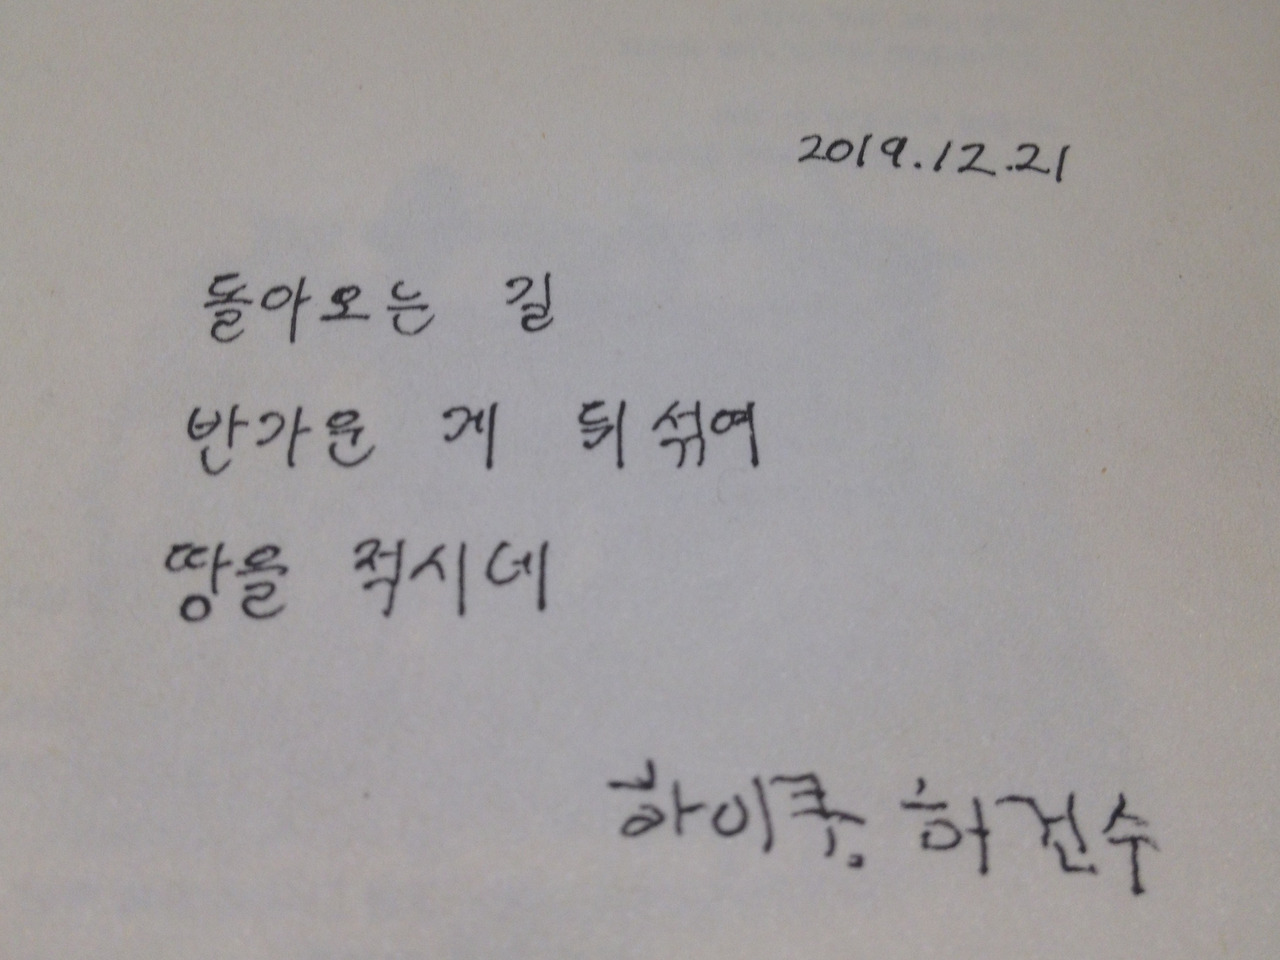 2019.12.21
돌아오는 길
반가운 게 뒤섞여
땅을 적시네
하이쿠. 허건수